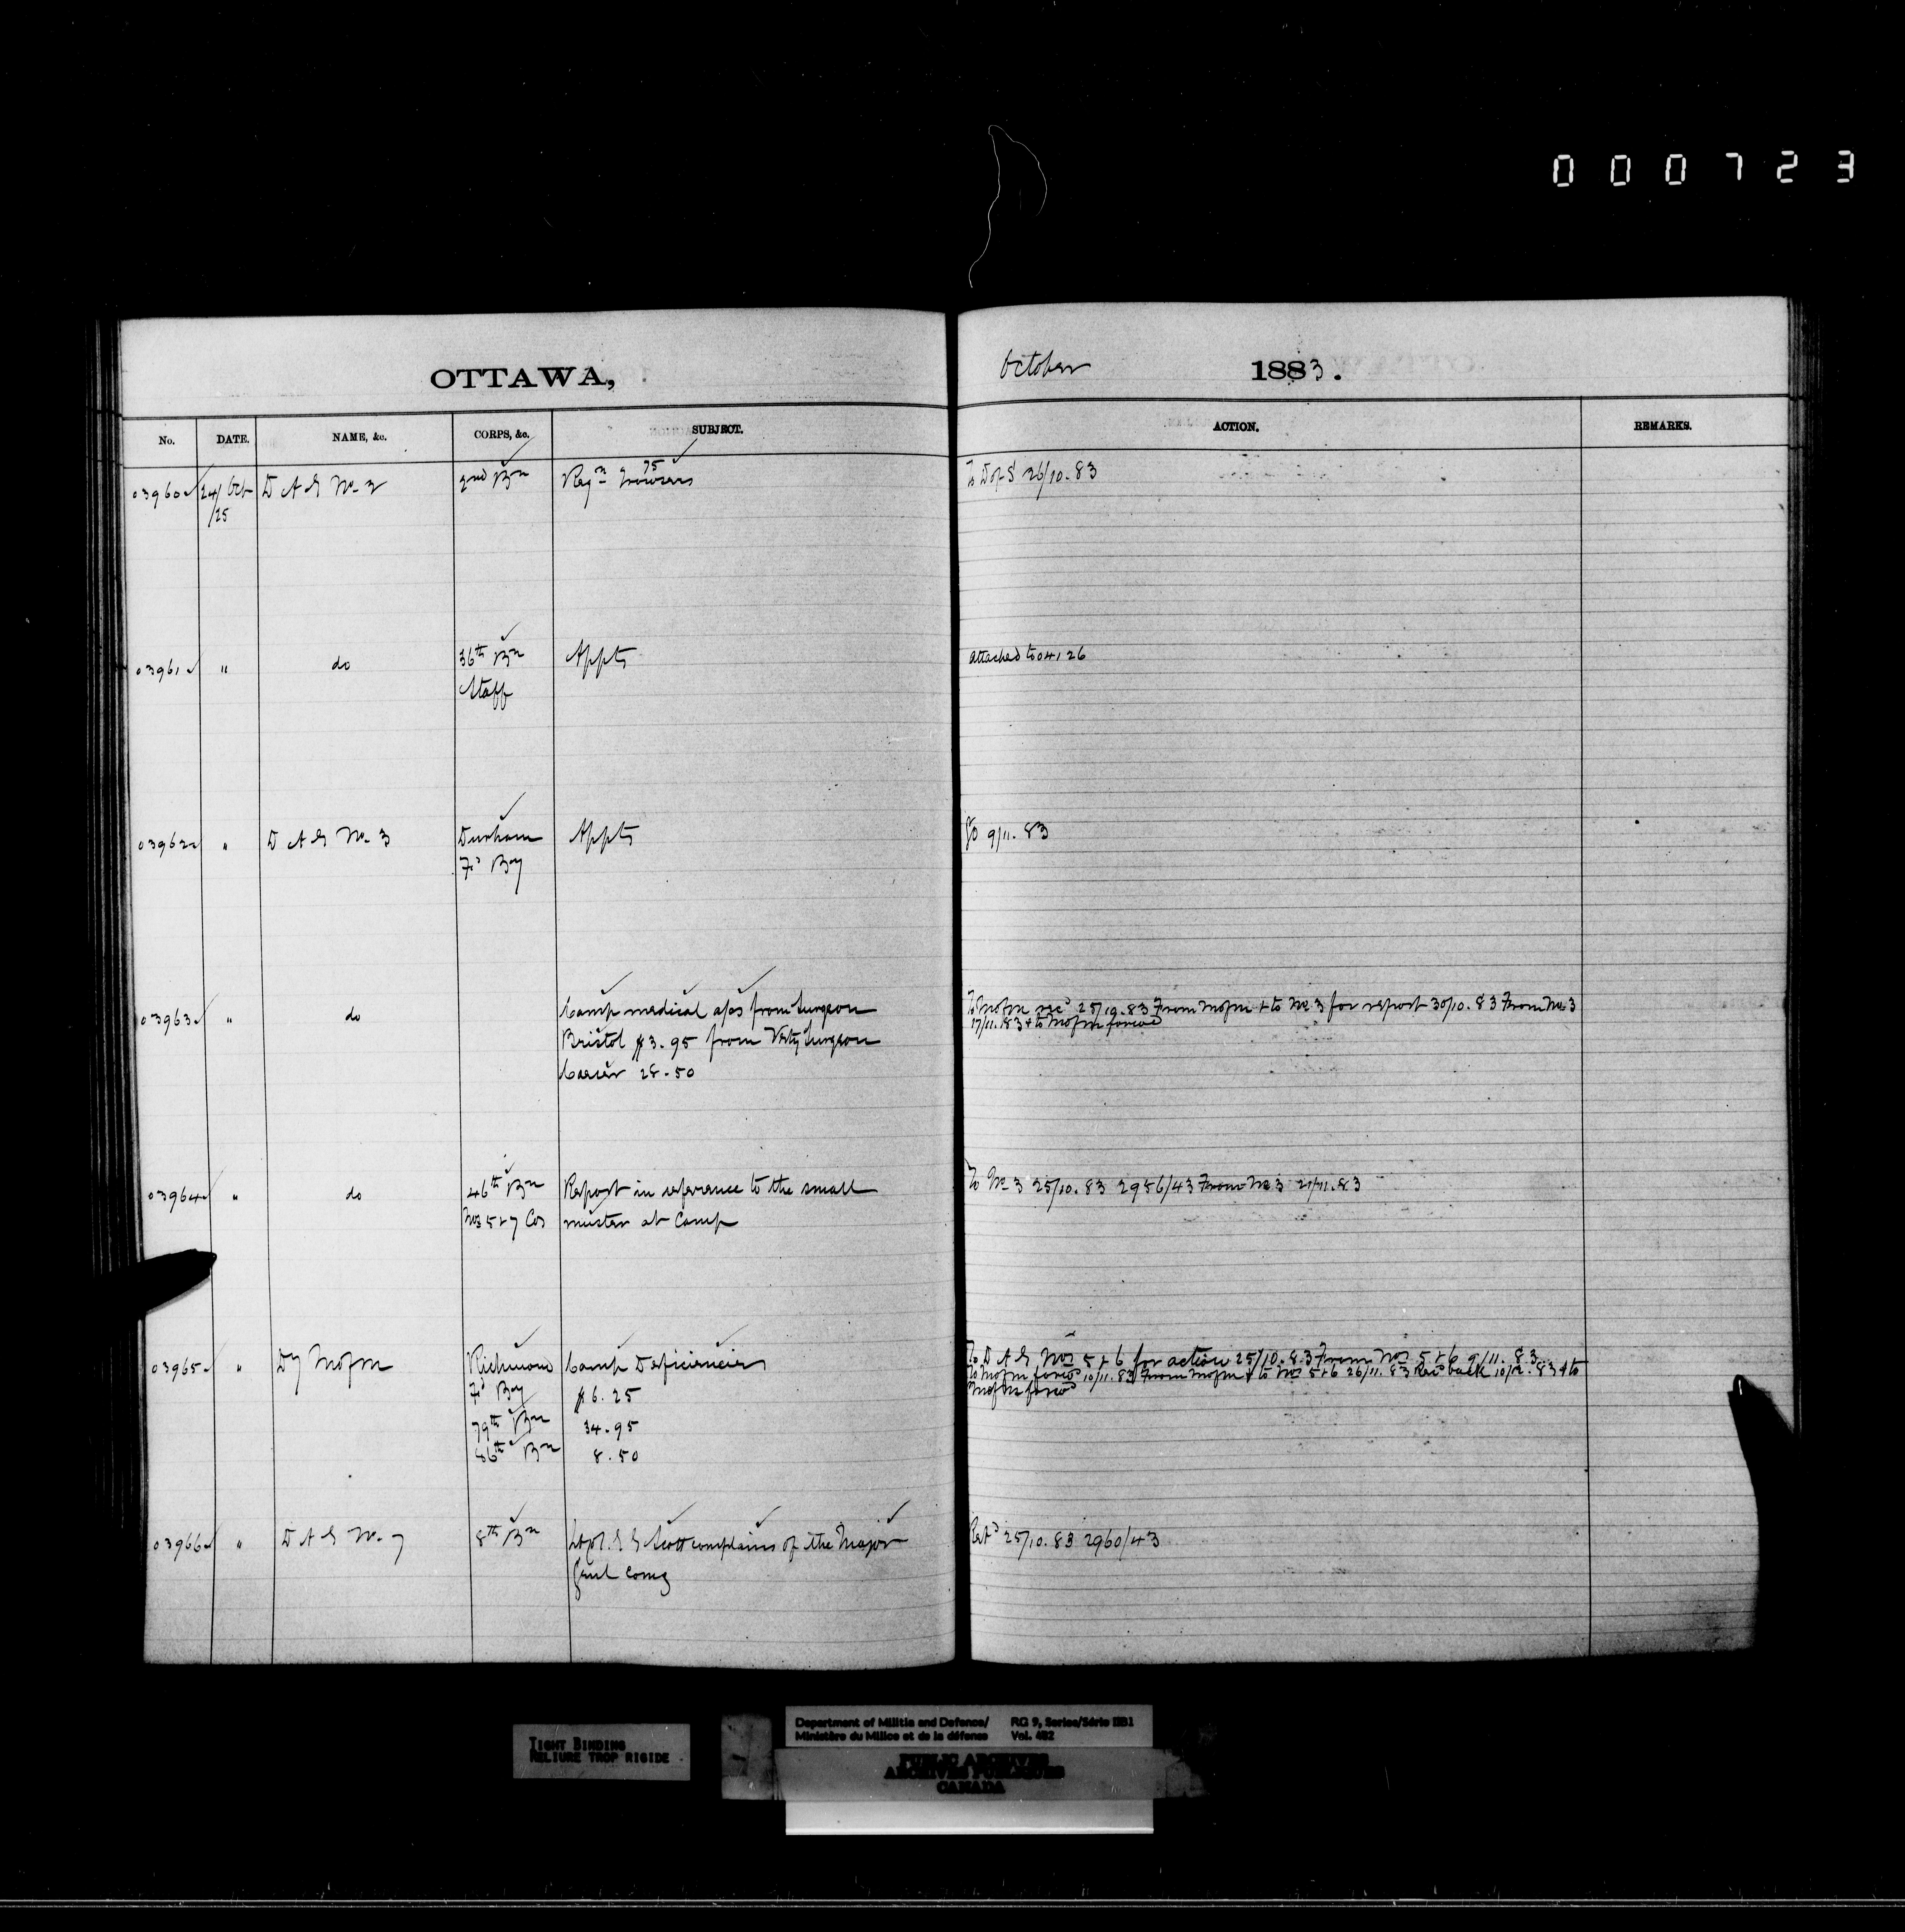 000723
OTTAWA,
October 1883.
No. DATE. NAME, &c. CORPS, &c. SUBJECT. ACTION. REMARKS.
03960 24/Oct D A G No. 2 2nd Bn Reqn 75 Trowsers To D of S 26/10.83
/25
03961 " do 36th Bn Appts attached to 04126
Staff
03962 " D A G No. 3 Durham Appts GO 9/11.83
Fd Bay
03963 " do Camp medical a/cs from Surgeon To MofM rec 25/10.83 From MofM + to No. 3 for report 30/10.83 From No. 3
17/11.83 + to MofM forwd
Bristol $3.95 from Vety Surgeon
28.50
03964 " do 46th Bn Report in reference to the small To No 3 25/10.83 2956/43 From No 3 21/11.83
Nos 5 + 7 Cos muster at Camp
03965 " Dy MofM Richmond Camp Deficiencies To D A G Nos 5 + 6 for action 25/10.83 From Nos 5 + 6 9/11.83
To MofM forwd 10/11.83 From MofM + to Nos 5+6 26/11.83 Recd back 10/12.83 + to
MofM forwd
Fd Bay $6.25
79th Bn 34.95
86th Bn 8.50
03966 " D A G No. 7 8th Bn Scott complains of the Major Retd 25/10.83 2960/43
Genl Comg
TIGHT BINDING
RELIURE TROP RIGIDE
Department of Militia and Defence/ RG 9, Series/Série IIB1
Ministère du Milice et de la défense Vol. 482
PUBLIC ARCHIVES
ARCHIVES PUBLIQUES
CANADA